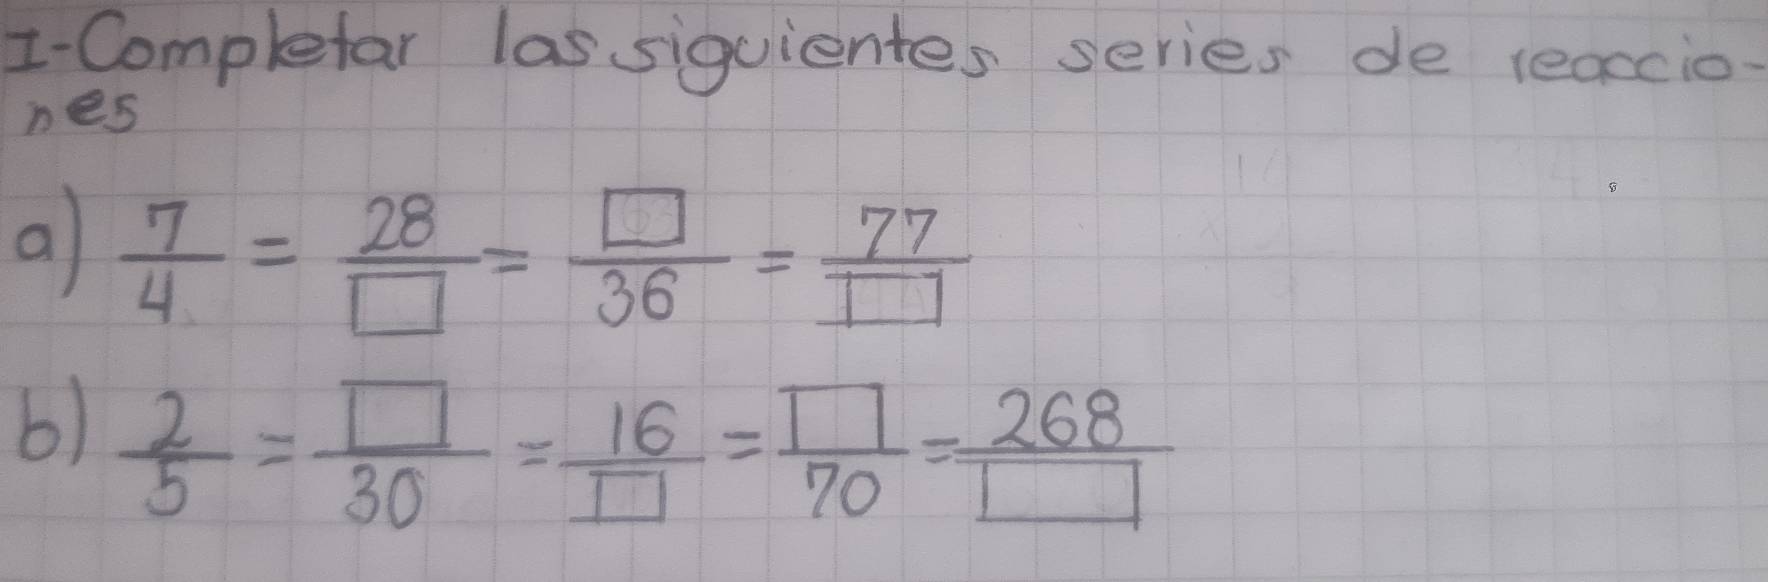 I-Completar las siguientes series de reaccio-
nes
a) 7/4 = 28/□ = □/36 = 77/□
b) 2/5 = □/30 = 16/□ = □/70 = 268/□